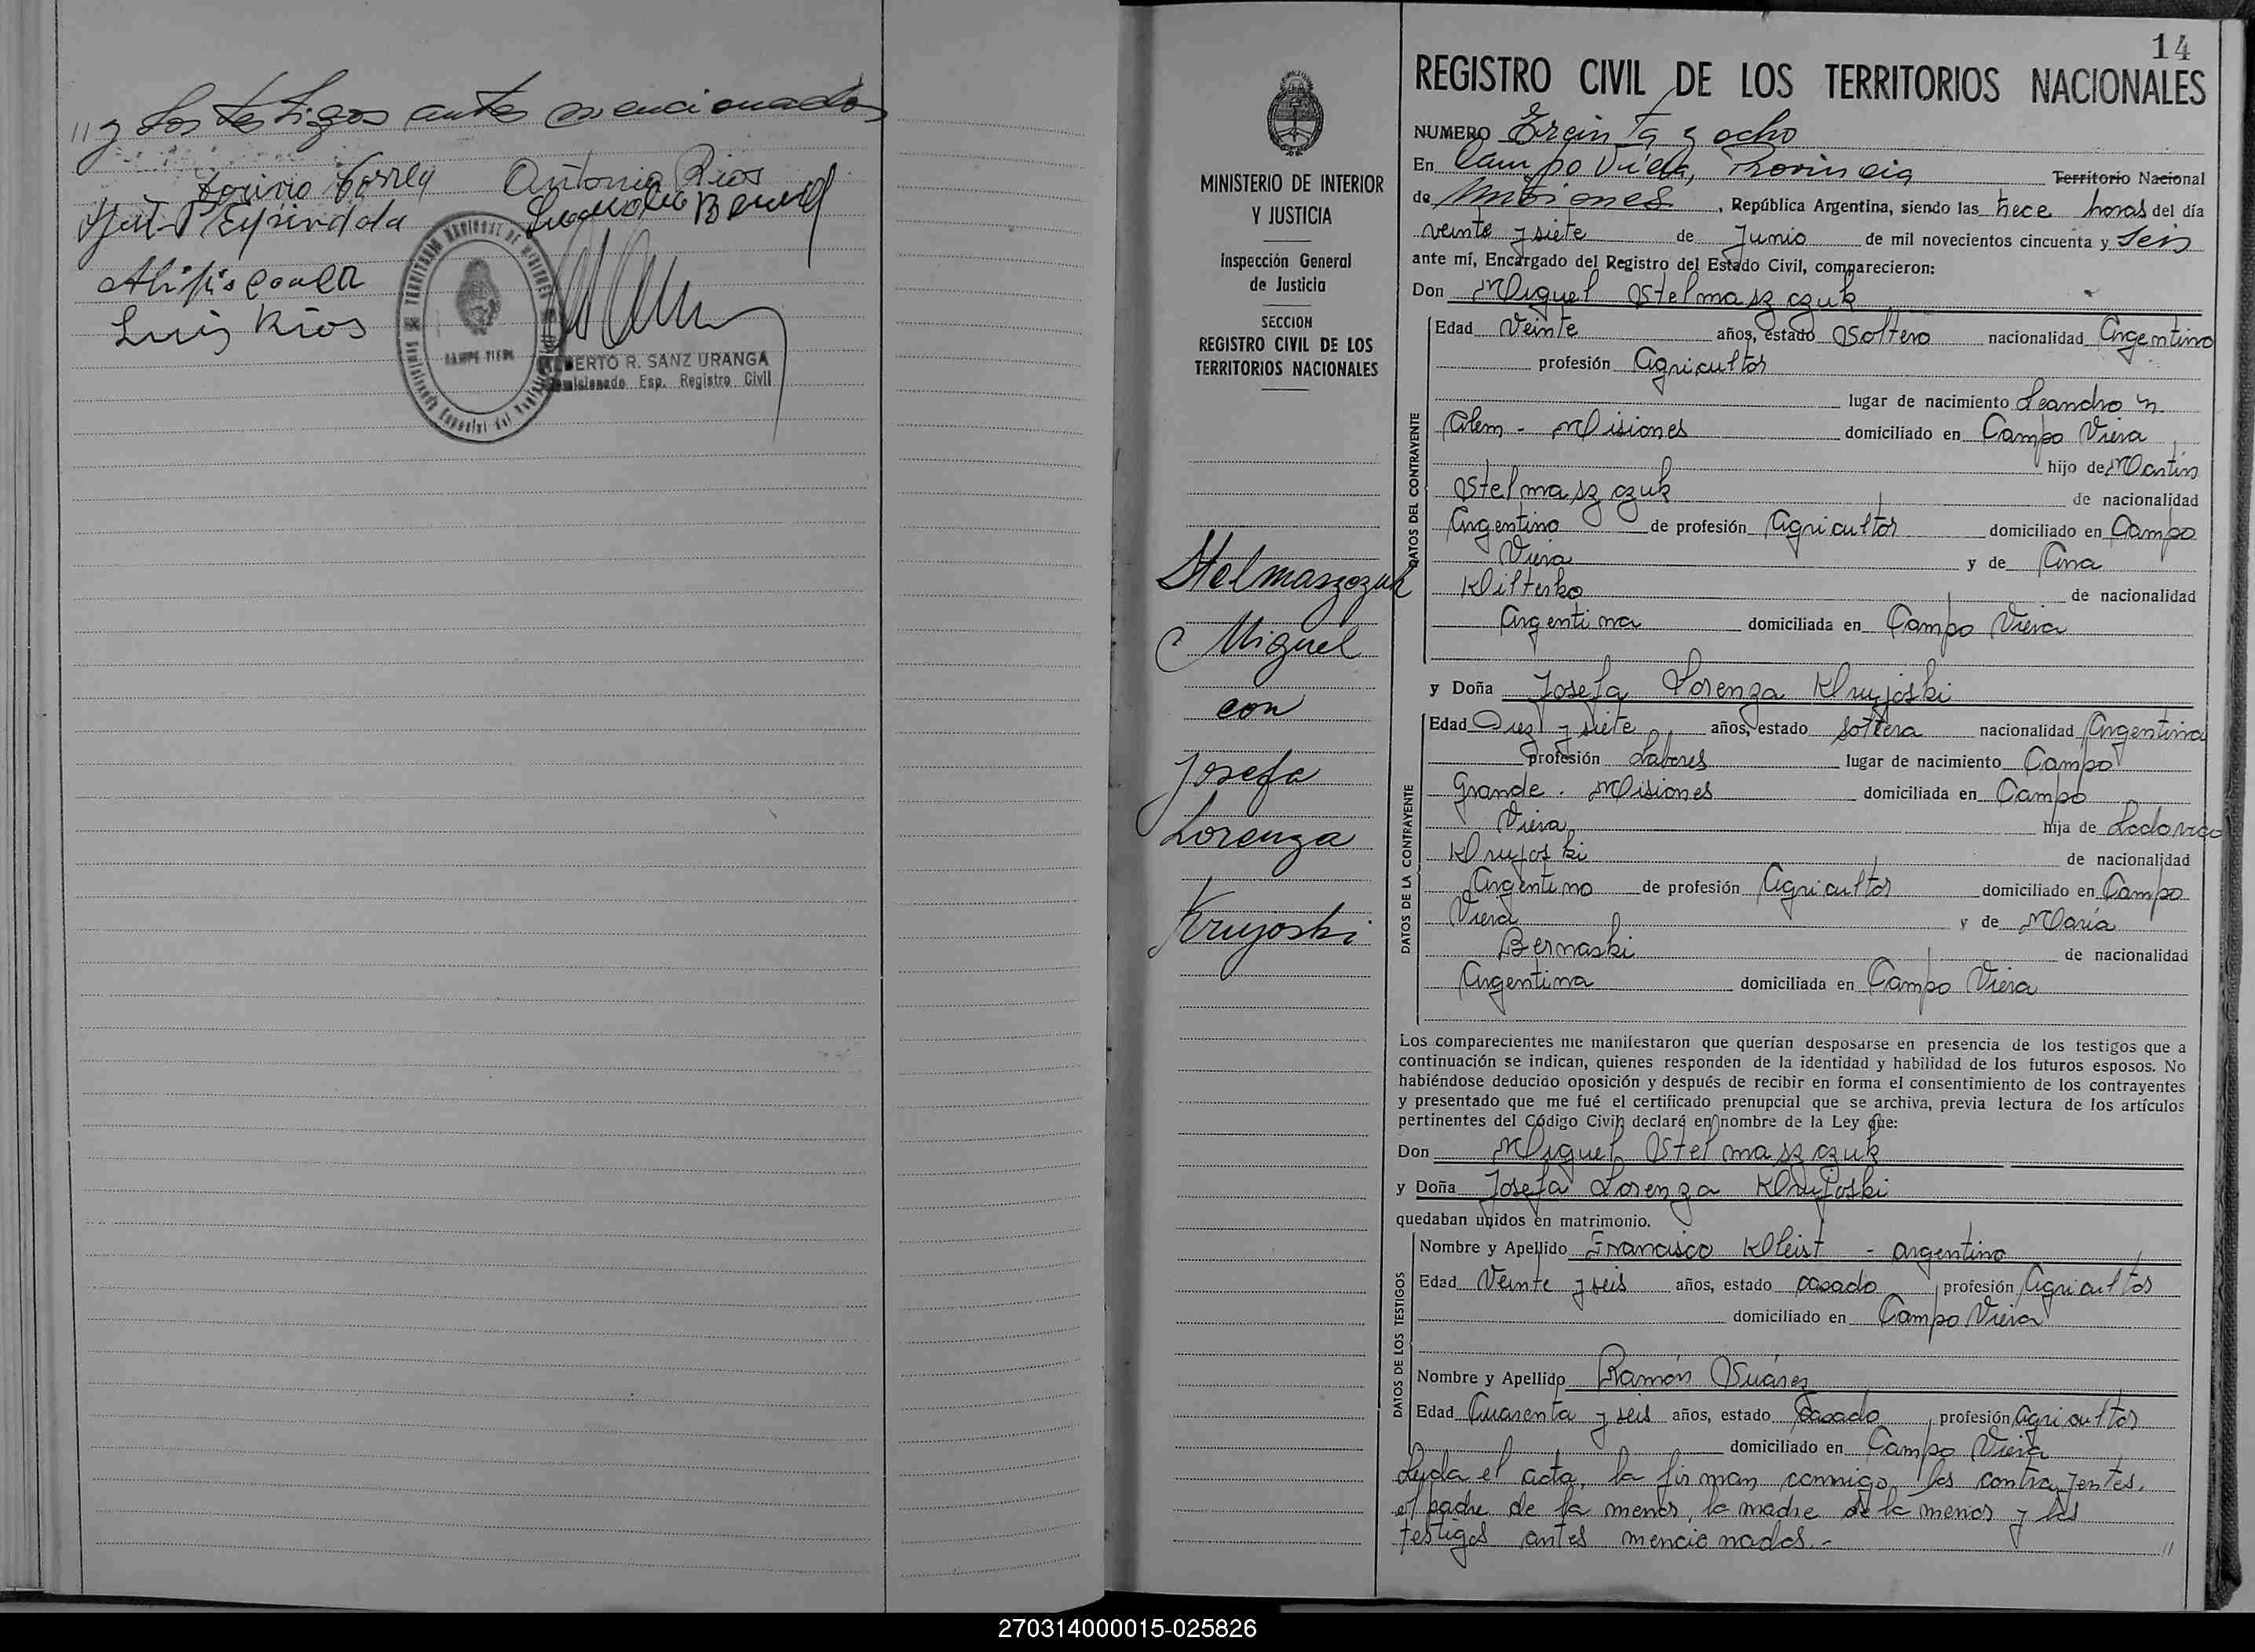 " y los testigos antes mencionados
Antonia Rios
Espindola
Luis Rios
TERRITORIO NACIONAL DE MISIONES
CAMPO VIERA
BERTO R. SANZ URANGA
Comisionado Esp. Registro Civil
14
REGISTRO CIVIL DE LOS TERRITORIOS NACIONALES
MINISTERIO DE INTERIOR
Y JUSTICIA
Inspección General
de Justicia
SECCION
REGISTRO CIVIL DE LOS
TERRITORIOS NACIONALES
Stelmaszczuk
Miguel
con
Josefa
Lorenza
Krujoski
NUMERO Treinta y ocho
En Campo Viera, Provincia Territorio Nacional
de Misiones, República Argentina, siendo las trece horas del día
veinte y siete de Junio de mil novecientos cincuenta y Seis
ante mí, Encargado del Registro del Estado Civil, comparecieron:
Don Miguel Stelmaszczuk
DATOS DEL CONTRAYENTE
Edad Veinte años, estado Soltero nacionalidad Argentino
profesión Agricultor
lugar de nacimiento Leandro N.
Alem - Misiones domiciliado en Campo Viera
hijo de Martin
Stelmaszczuk de nacionalidad
Argentino de profesión Agricultor domiciliado en Campo
Viera y de Ana
Kliterko de nacionalidad
Argentina domiciliada en Campo Viera
y Doña Josefa Lorenza Krujoski
DATOS DE LA CONTRAYENTE
Edad Diez y siete años, estado Soltera nacionalidad Argentina
profesión Labores lugar de nacimiento Campo
Grande - Misiones domiciliada en Campo
Viera hija de Lodovico
Krujoski de nacionalidad
Argentino de profesión Agricultor domiciliado en Campo
Viera y de María
Bernaski de nacionalidad
Argentina domiciliada en Campo Viera
Los comparecientes me manifestaron que querían desposarse en presencia de los testigos que a
continuación se indican, quienes responden de la identidad y habilidad de los futuros esposos. No
habiéndose deducido oposición y después de recibir en forma el consentimiento de los contrayentes
y presentado que me fué el certificado prenupcial que se archiva, previa lectura de los artículos
pertinentes del Código Civil, declaré en nombre de la Ley que:
Don Miguel Stelmaszczuk
y Doña Josefa Lorenza Krujoski
quedaban unidos en matrimonio.
DATOS DE LOS TESTIGOS
Nombre y Apellido Francisco Kleist - argentino
Edad Veinte y seis años, estado casado profesión Agricultor
domiciliado en Campo Viera
Nombre y Apellido Ramón Suárez
Edad Cuarenta y seis años, estado Casado, profesión Agricultor
domiciliado en Campo Viera
Leyda el acta, la firman conmigo los contrayentes,
el padre de la menor, la madre de la menor y los
testigos antes mencionados.- "
270314000015-025826